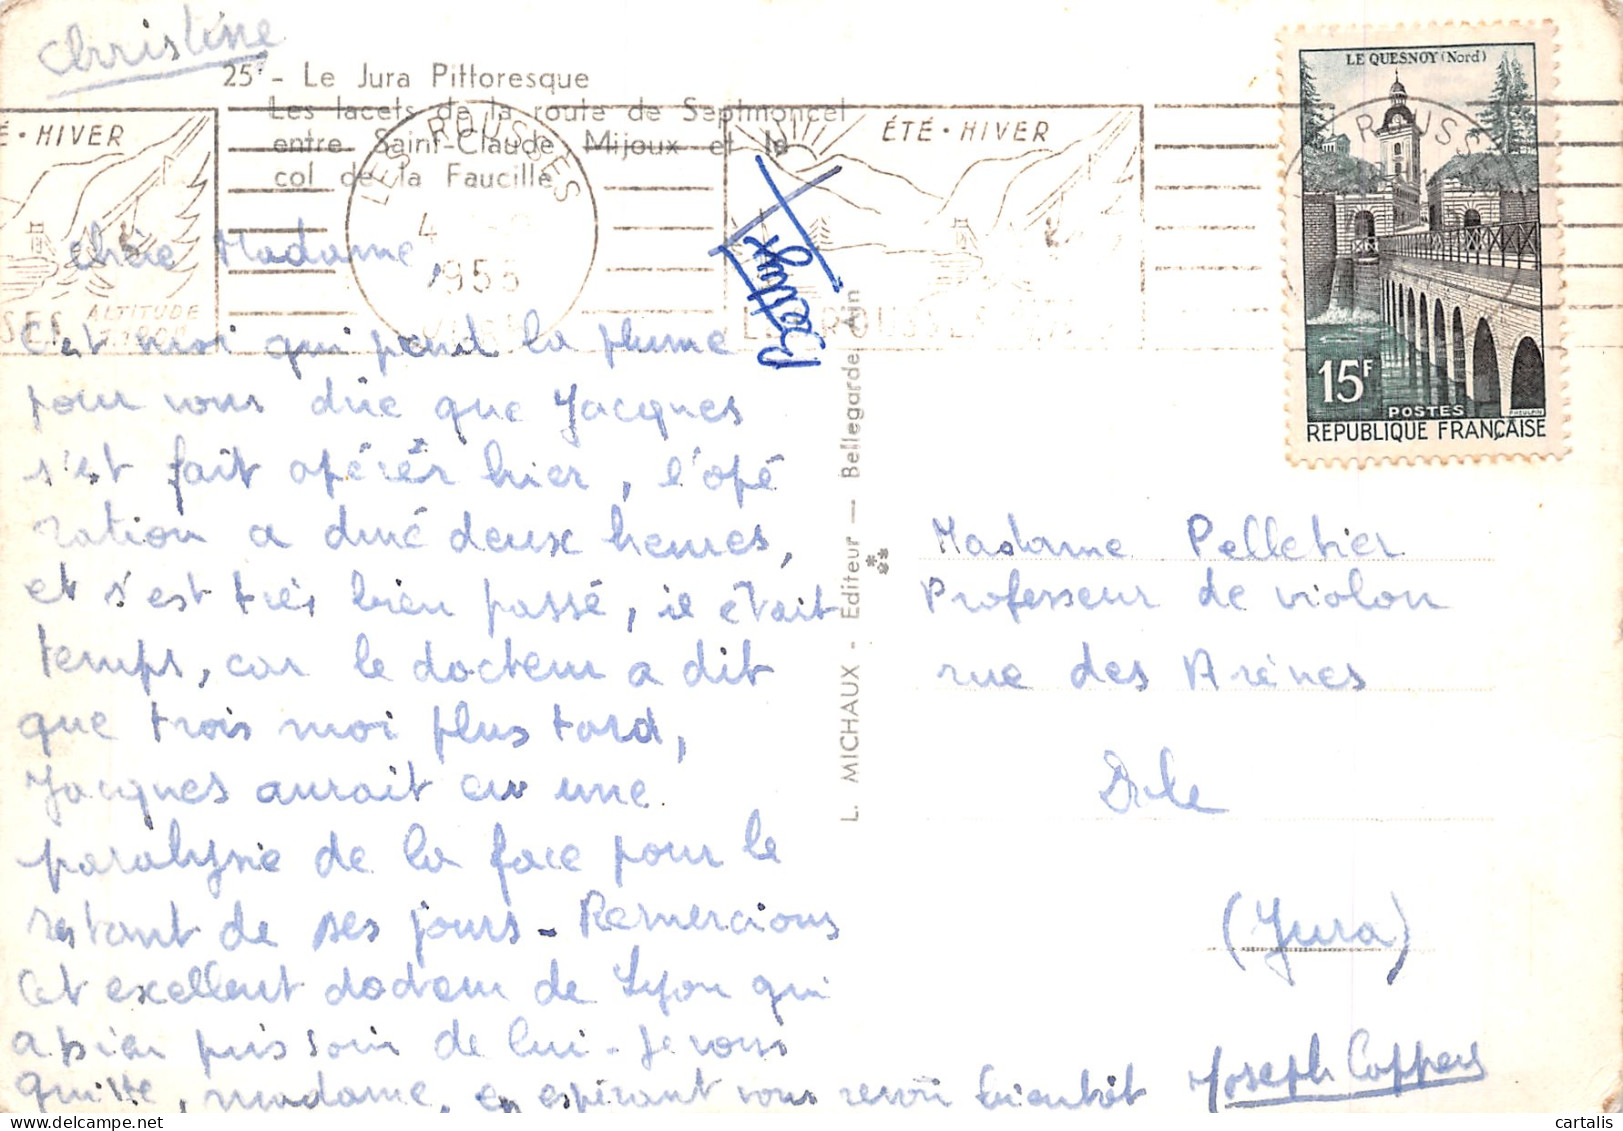 Christine
25 - Le Jura Pittoresque
Les lacets de la route de Septmoncel
entre Saint-Claude Mijoux et le
col de la Faucille
É • HIVER
ALTITUDE
LES ROUSSES
4
1955
ÉTÉ • HIVER
LES ROUSSES
LE QUESNOY (Nord)
15F
POSTES
REPUBLIQUE FRANÇAISE
chère Madame,
C'est moi qui prend la plume
pour vous dire que Jacques
s'est fait opérér hier, l'opé
ration a duré deux heures,
et s'est très bien passé, il était
temps, car le docteur a dit
que trois moi plus tard,
Jacques aurait eu une
paralysie de la face pour le
restant de ses jours - Remercions
cet excellent docteur de Lyon qui
a bien pris soin de lui - Je vous
quitte, madame, en espérant vous revoir bientôt Joseph Coppens
L. MICHAUX - Editeur — Bellegarde Ain
Madame Pelletier
Professeur de violon
rue des Arènes
Dole
(Jura)
cartalis